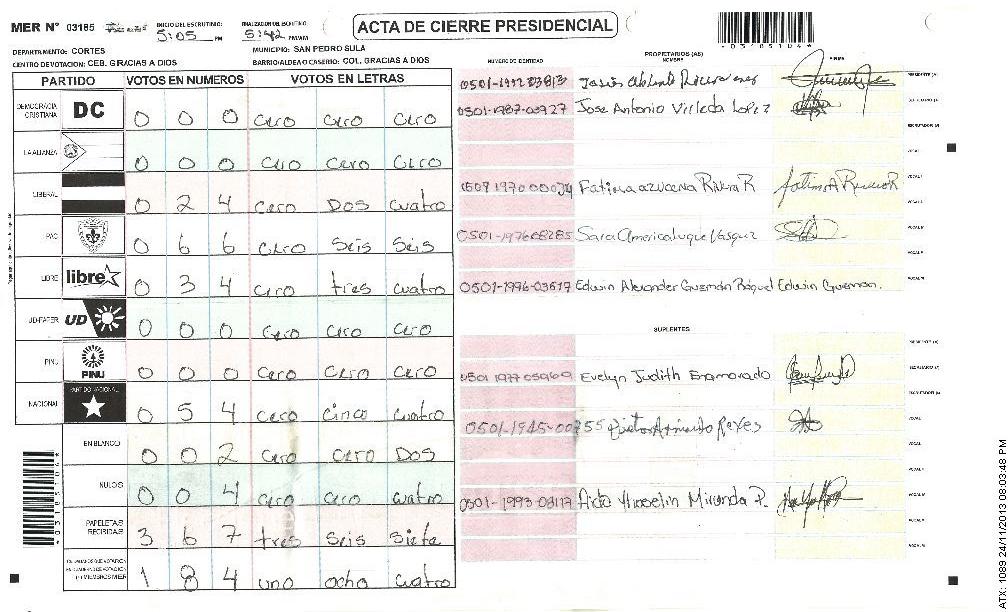 MER Nº 03185 INICIO DEL ESCRUTINIO: 5:05 PM FINALIZACION DEL ESCRUTINIO: 5:42 PM/AM ACTA DE CIERRE PRESIDENCIAL
*03185104*
DEPARTAMENTO: CORTES MUNICIPIO: SAN PEDRO SULA
CENTRO DE VOTACION: CEB. GRACIAS A DIOS BARRIO/ALDEA O CASERIO: COL. GRACIAS A DIOS
PARTIDO VOTOS EN NUMEROS VOTOS EN LETRAS
DEMOCRACIA CRISTIANA DC 0 0 0 cero cero cero
LA ALIANZA 0 0 0 cero cero cero
LIBERAL 0 2 4 cero DOS cuatro
PAC 0 6 6 cero Seis Seis
LIBRE libre 0 3 4 cero tres cuatro
UD-FAPER UD 0 0 0 cero cero cero
PINU PINU 0 0 0 cero cero cero
NACIONAL PARTIDO NACIONAL 0 5 4 cero cinco cuatro
EN BLANCO 0 0 2 cero cero DOS
NULOS 0 0 4 cero cero cuatro
PAPELETAS RECIBIDAS 3 6 7 tres Seis Siete
1 8 4 uno ocho cuatro
PROPIETARIOS (AS)
NUMERO DE IDENTIDAD NOMBRE FIRMA
PRESIDENTE (A)
0501-1987-03927 Jose Antonio Virleda Lopez SECRETARIO (A)
ESCRUTADOR (A)
VOCAL
Fatima azucena Rivera R VOCAL I
VOCAL II
Sara America luque Vasquez VOCAL III
VOCAL IV
0501-1996-03617 Edwin Alexander Guzmán Raquel Edwin Guzman. VOCAL V
SUPLENTES
PRESIDENTE (A)
0501 1977 05960 Evelyn Judith Enamorado SECRETARIO (A)
ESCRUTADOR (A)
0501-1945-00755 VOCAL
VOCAL I
VOCAL II
0501-1993-03117 Aida Yhoselin Miranda P. VOCAL III
VOCAL IV
VOCAL V
*03185104*
ATX: 1089 24/11/2013 08:03:48 PM